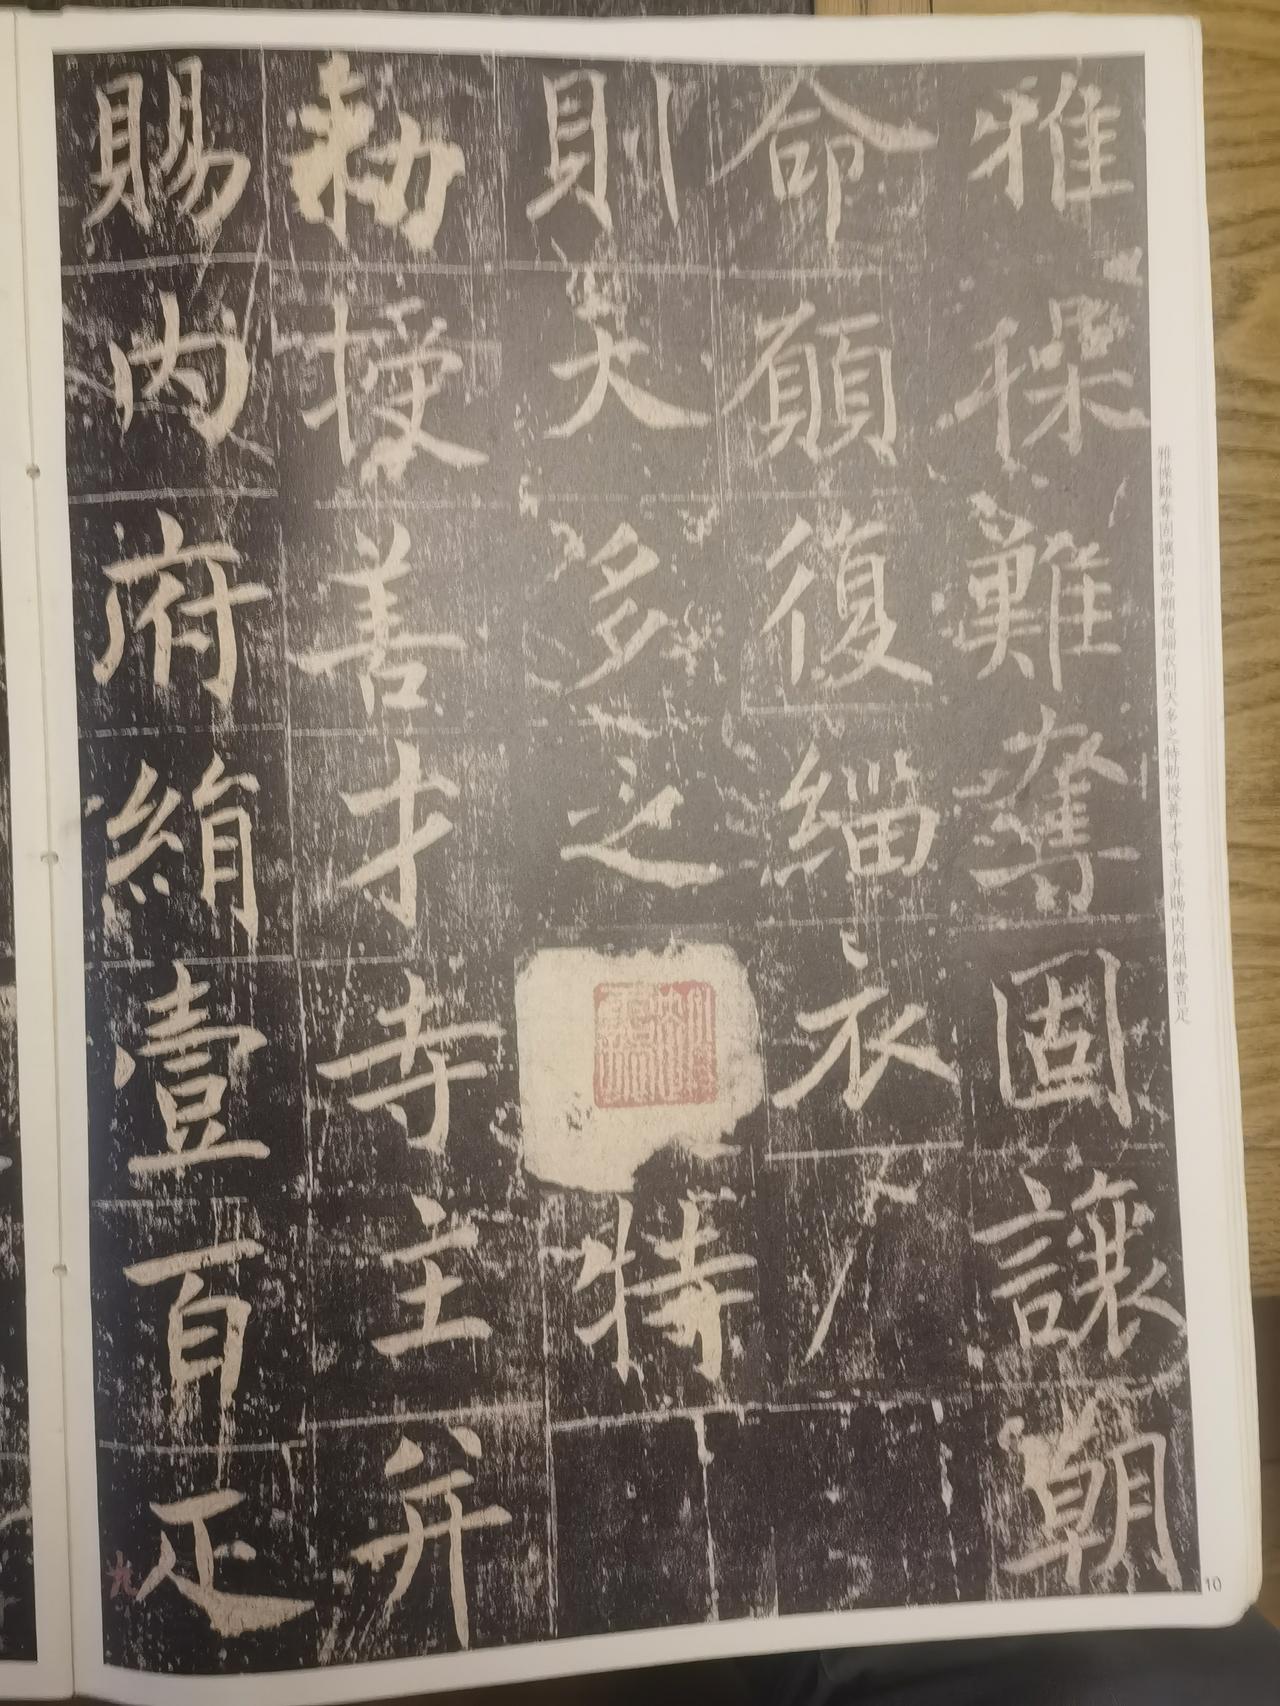 雅操難奪固讓朝
命願復緇衣
則天多之特
勑授善才寺主并
賜內府絹壹百疋
雅操難奪固讓朝命願復緇衣則天多之特勑授善才寺主并賜內府絹壹百疋
九
10